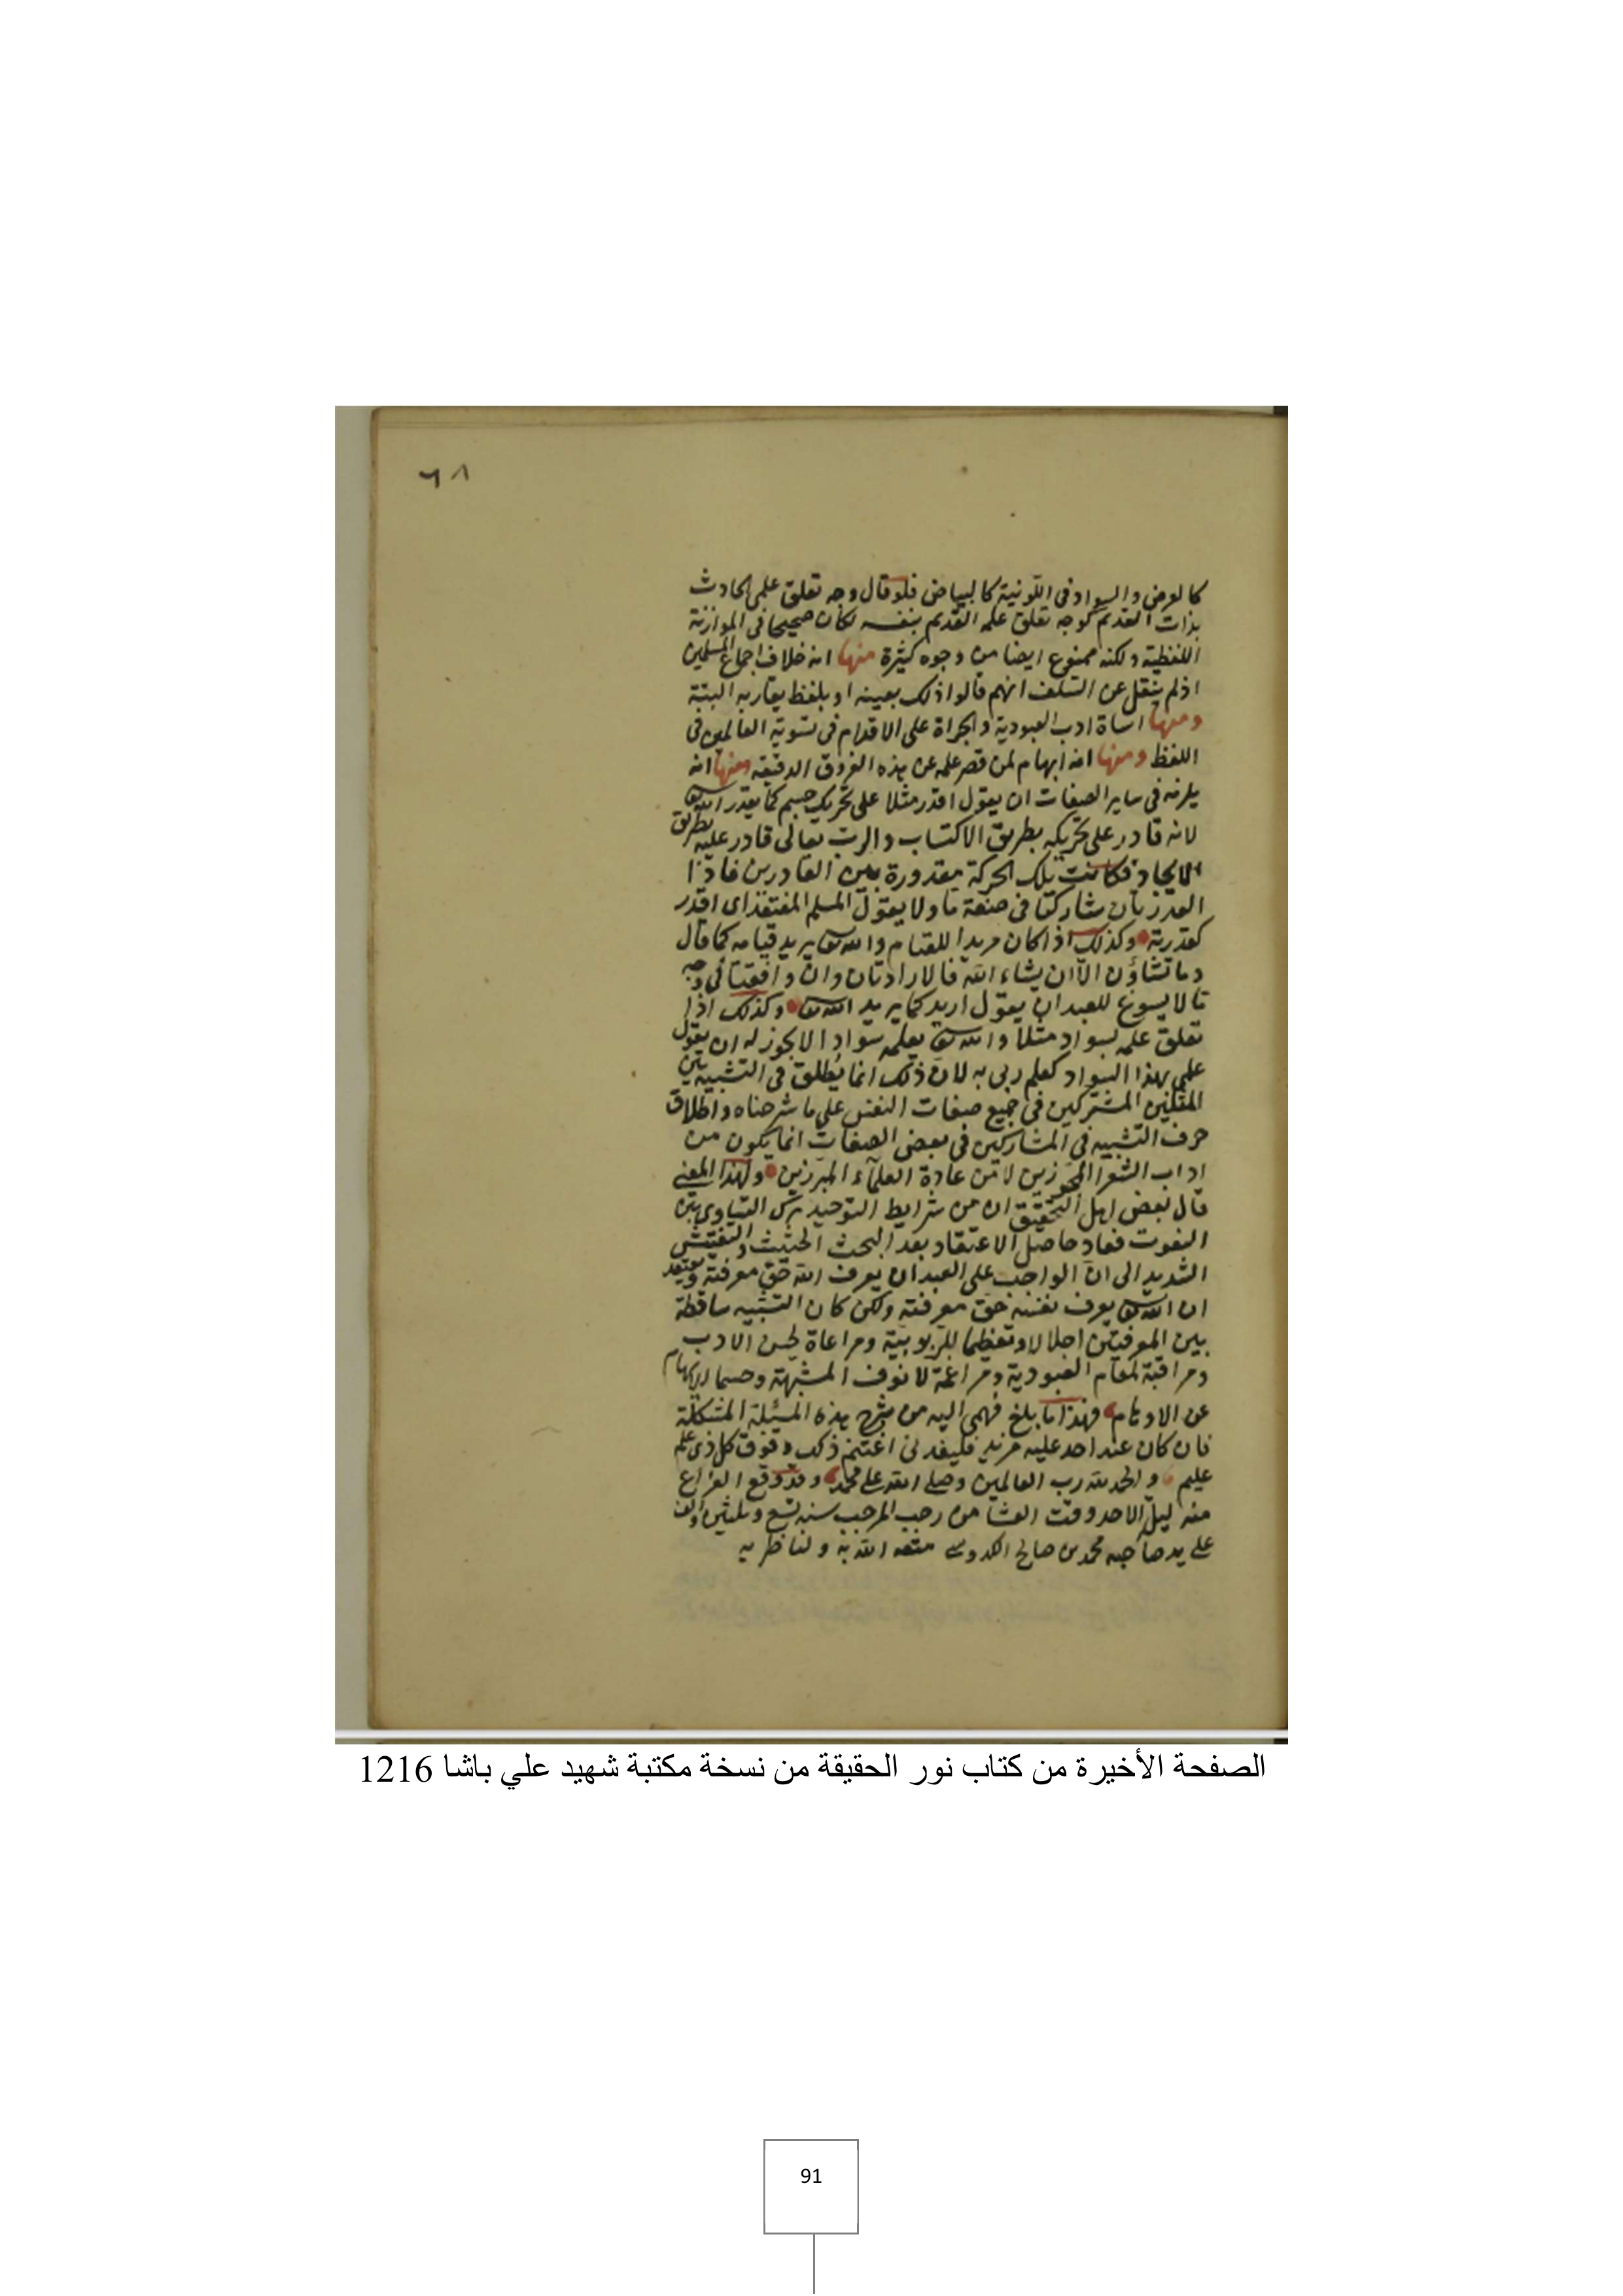 ٦٨
كالعرض والسواد في اللونية كالبياض فلو قال وجه تعلق علمي الحادث
بذات القديم كوجه تعلق علمه القديم بنفسه لكان صحيحا في الموازنة
اللفظية ولكنه ممنوع ايضا من وجوه كثيرة منها انه خلاف اجماع المسلمين
اذ لم ينقل عن السلف انهم قالوا ذلك بعينه او بلفظ يقاربه البتة
ومنها اساة ادب العبودية والجراة على الاقدام في تسوية العالمين في
اللفظ ومنها انه ابهام لمن قصر علمه عن هذه الفروق الدقيقة ومنها انه
يلزمه في ساير الصفات ان يقول اقدر مثلا على تحريك جسم كما يقدر الله تع
لانه قادر على تحريكه بطريق الاكتساب والرب تعالى قادر عليه بطريق
الايجاد فكانت تلك الحركة مقدورة بين القادرين فاذا
القدرتان شاركتا في صنعة ما ولا يقول المسلم المعتقد اي اقدر
كقدرته وكذلك اذا كان مريدا للقيام والله تع يريد قيامه كما قال
وما تشاؤن الا ان يشاء الله فالارادتان وان وافقتا في وجه
ما لا يسوغ للعبد ان يقول اريد كما يريد الله تع وكذلك اذا
تعلق علمه بسواد مثلا والله تع يعلمه سوادا لا يجوز له ان يقول
علمي بهذا السواد كعلم ربي به لان ذلك انما يطلق في التشبيه بين
المثلين المشتركين في جميع صفات النفس على ما شرحناه واطلاق
حرف التشبيه في المشاركين في بعض الصفات انما يكون من
اداب الشعرا المجوزين لا من عادة العلمآء المبرزين ولهذا المعنى
قال بعض اهل التحقيق ان من شرايط التوحيد ترك التساوي بين
النعوت فعاد حاصل الاعتقاد بعد البحث الحثيث والتفتيش
الشديد الى ان الواجب على العبد ان يعرف الله حق معرفته ويعتقد
ان الله تع يعرف نفسه حق معرفته ولكن كان التشبيه ساقطة
بين المعرفتين اجلالا وتعظيما للربوبية ومراعاة لحسن الادب
ومراقبة لمقام العبودية ومراغمة لانوف المشبهة وحسما للابهام
عن الاوهام فهذا ما بلغ فهمي اليه من شرح هذه المسئلة المشكلة
فان كان عند احد عليه مزيد فليفدني اغتنم ذلك وفوق كل ذي علم
عليم والحمد لله رب العالمين وصلى الله على محمد وقد وقع الفراغ
منه ليل الاحد وقت العشا من رجب المرجب سنه تسع وثلثين والف
على يد صاحبه محمد بن صالح متعه الله به ولناظريه
الصفحة الأخيرة من كتاب نور الحقيقة من نسخة مكتبة شهيد علي باشا 1216
91